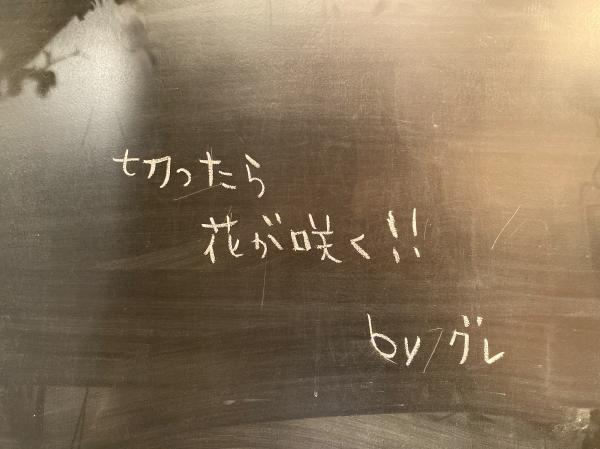 切ったら
花が咲く!!
by グレ